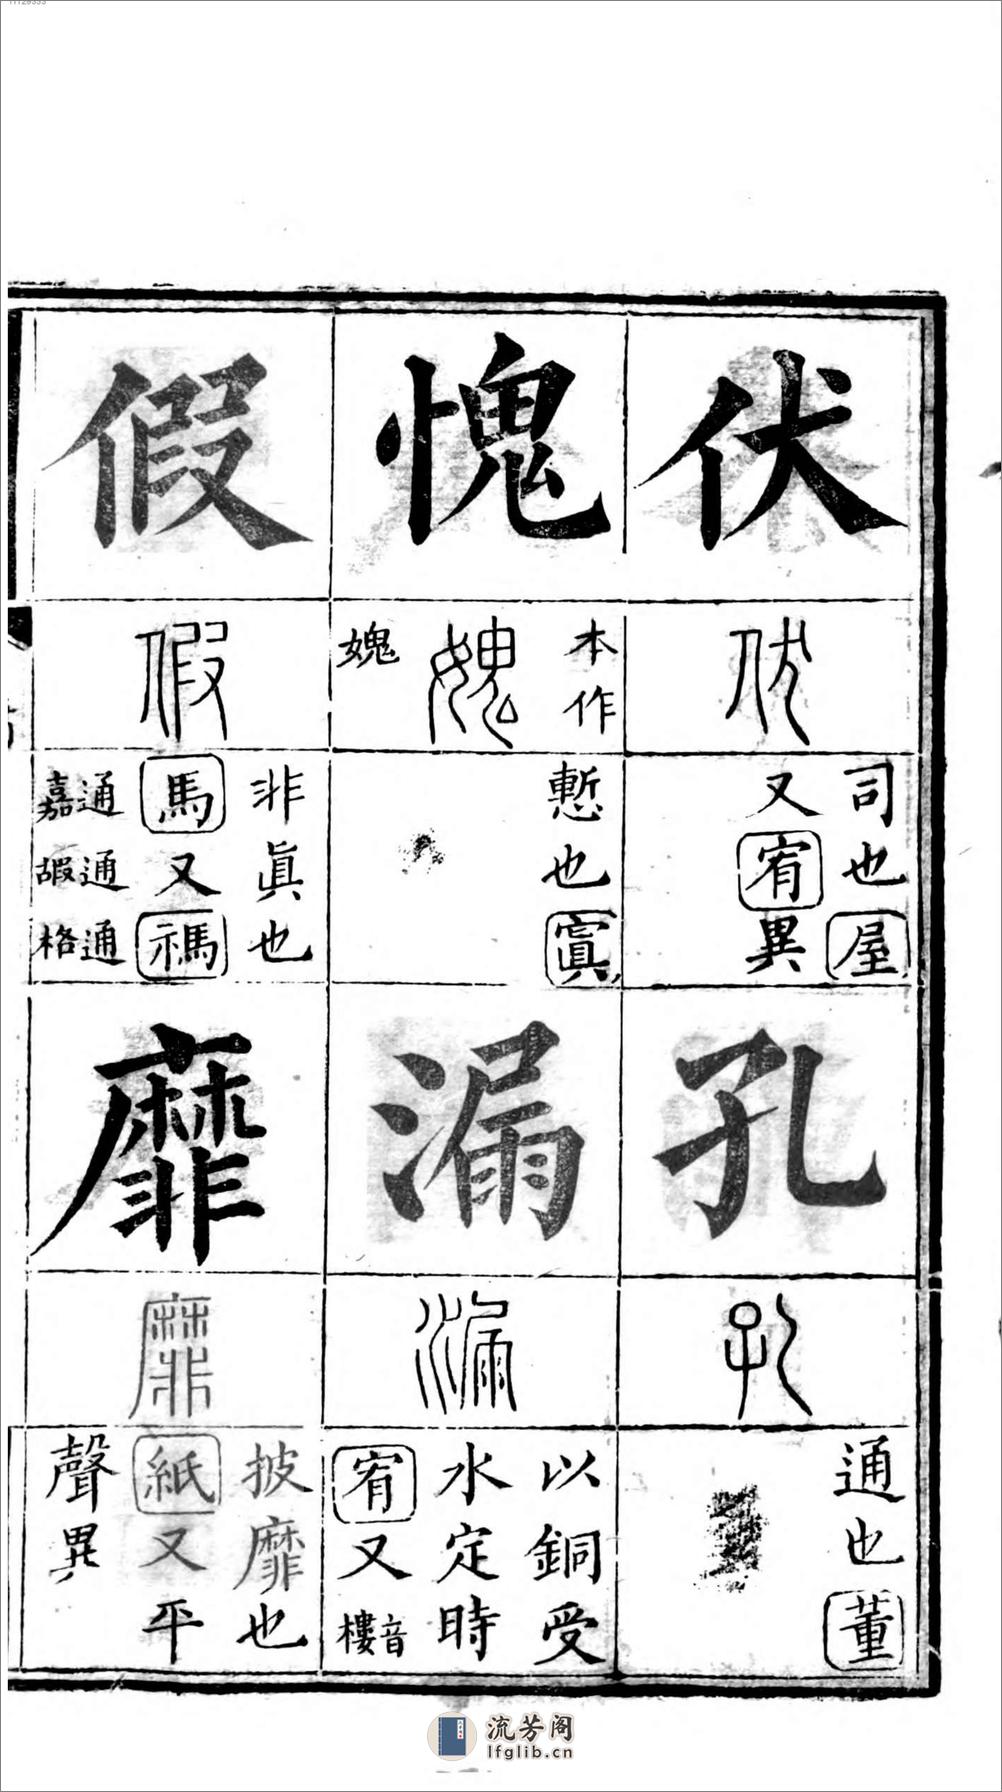 伏
伏
司也屋
又宥異
孔
孔
通也董
愧
本作
媿
媿
慙也寘
漏
漏
以銅受
水定時
宥又音樓
假
假
非眞也
馬又禡
通嘉
通嘏
通格
靡
靡
披靡也
紙又平
聲異
流芳阁
lfglib.cn